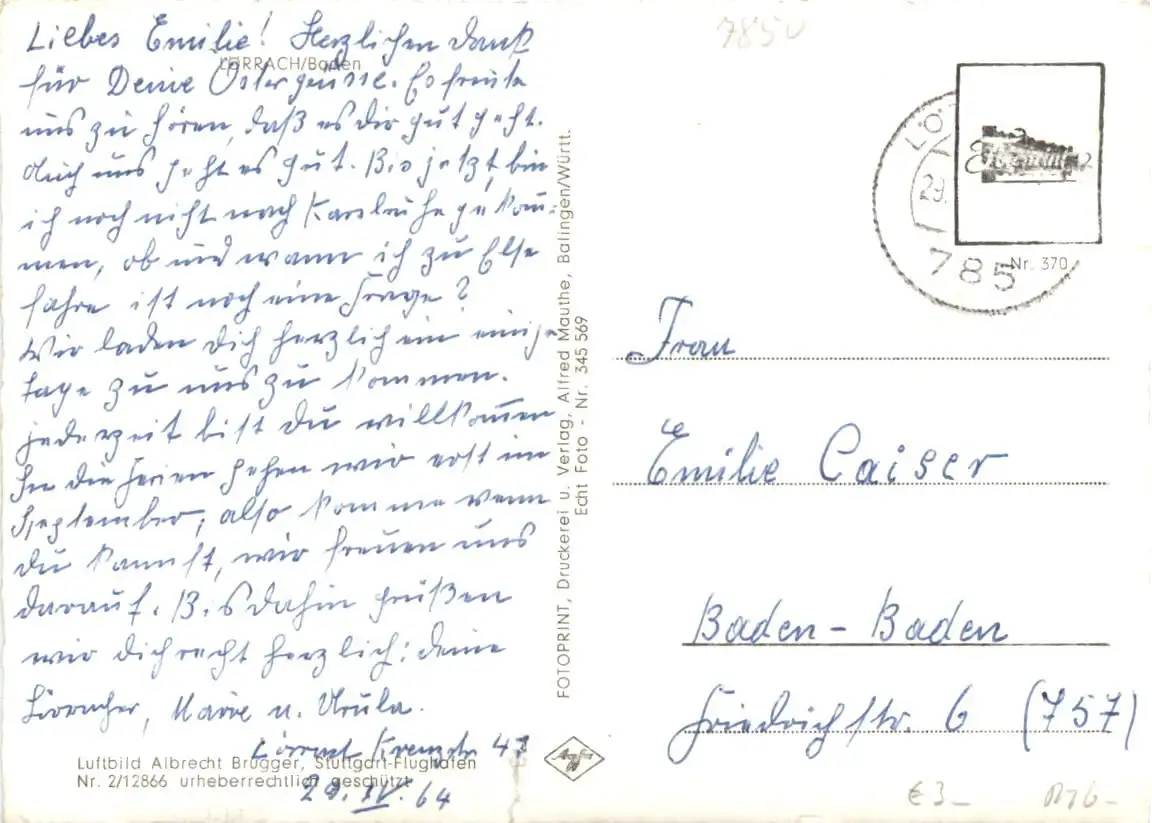 Liebes Emilie! Herzlichen Dank
LÖRRACH/Baden
für Deine Ostergrüsse. Es freute
uns zu hören, daß es dir gut geht.
Auch uns geht es gut. Bis jetzt, bin
ich noch nicht nach Karlsruhe gekom-
men, ob und wann ich zu Else
fahre ist noch eine Frage?
Wir laden Dich herzlich ein einige
Tage zu uns zu kommen.
jederzeit bist Du willkommen
In die Ferien gehen wir erst im
September, also komme wenn
Du kannst, wir freuen uns
darauf. Bis dahin grüßen
wir Dich recht herzlich: Deine
Lörracher, Marie u. Ursula.
Lörrach Kreuzstr. 43
29. IV. 64
Luftbild Albrecht Brugger, Stuttgart-Flughafen
Nr. 2/12866 urheberrechtlich geschützt
FOTOPRINT, Druckerei u. Verlag, Alfred Mauthe, Balingen/Württ.
Echt Foto - Nr. 345 569
7850
LÖ
29.
785
Nr. 370
Frau
Emilie Caiser
Baden-Baden
Friedrichstr. 6 (757)
€ 3-